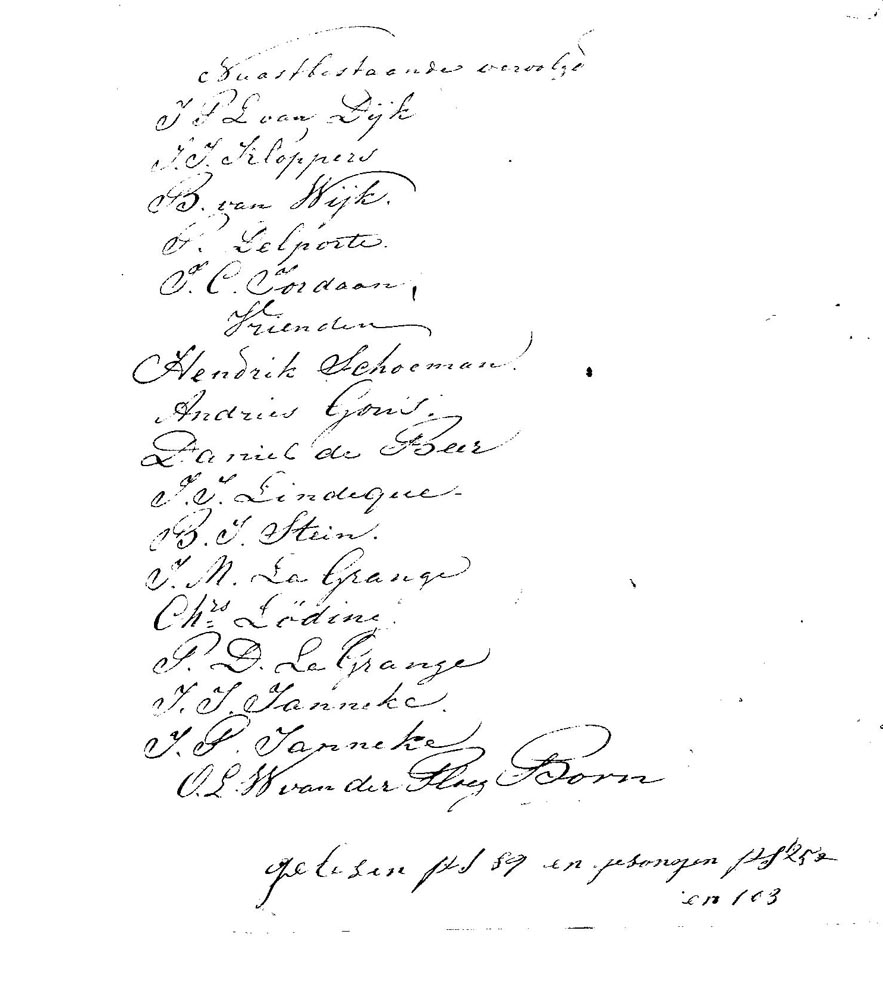 Naastbestaande vervolgd
J P L van Dijk
J. J. Kloppers
B. van Wijk.
P. Delporte.
J. C. Jordaan,
Vrienden
Hendrik Schoeman.
Andries Gous.
Daniel de Beer
J. J. Lindeque-
B. J. Stein.
J. M. La Grange
Chrs Lödine.
P. D. La Grange
J. J. Janneke.
J. P. Janneke
O. L. W van der Ploeg Born
gelesen ps 89 en gesongen ps
en 103